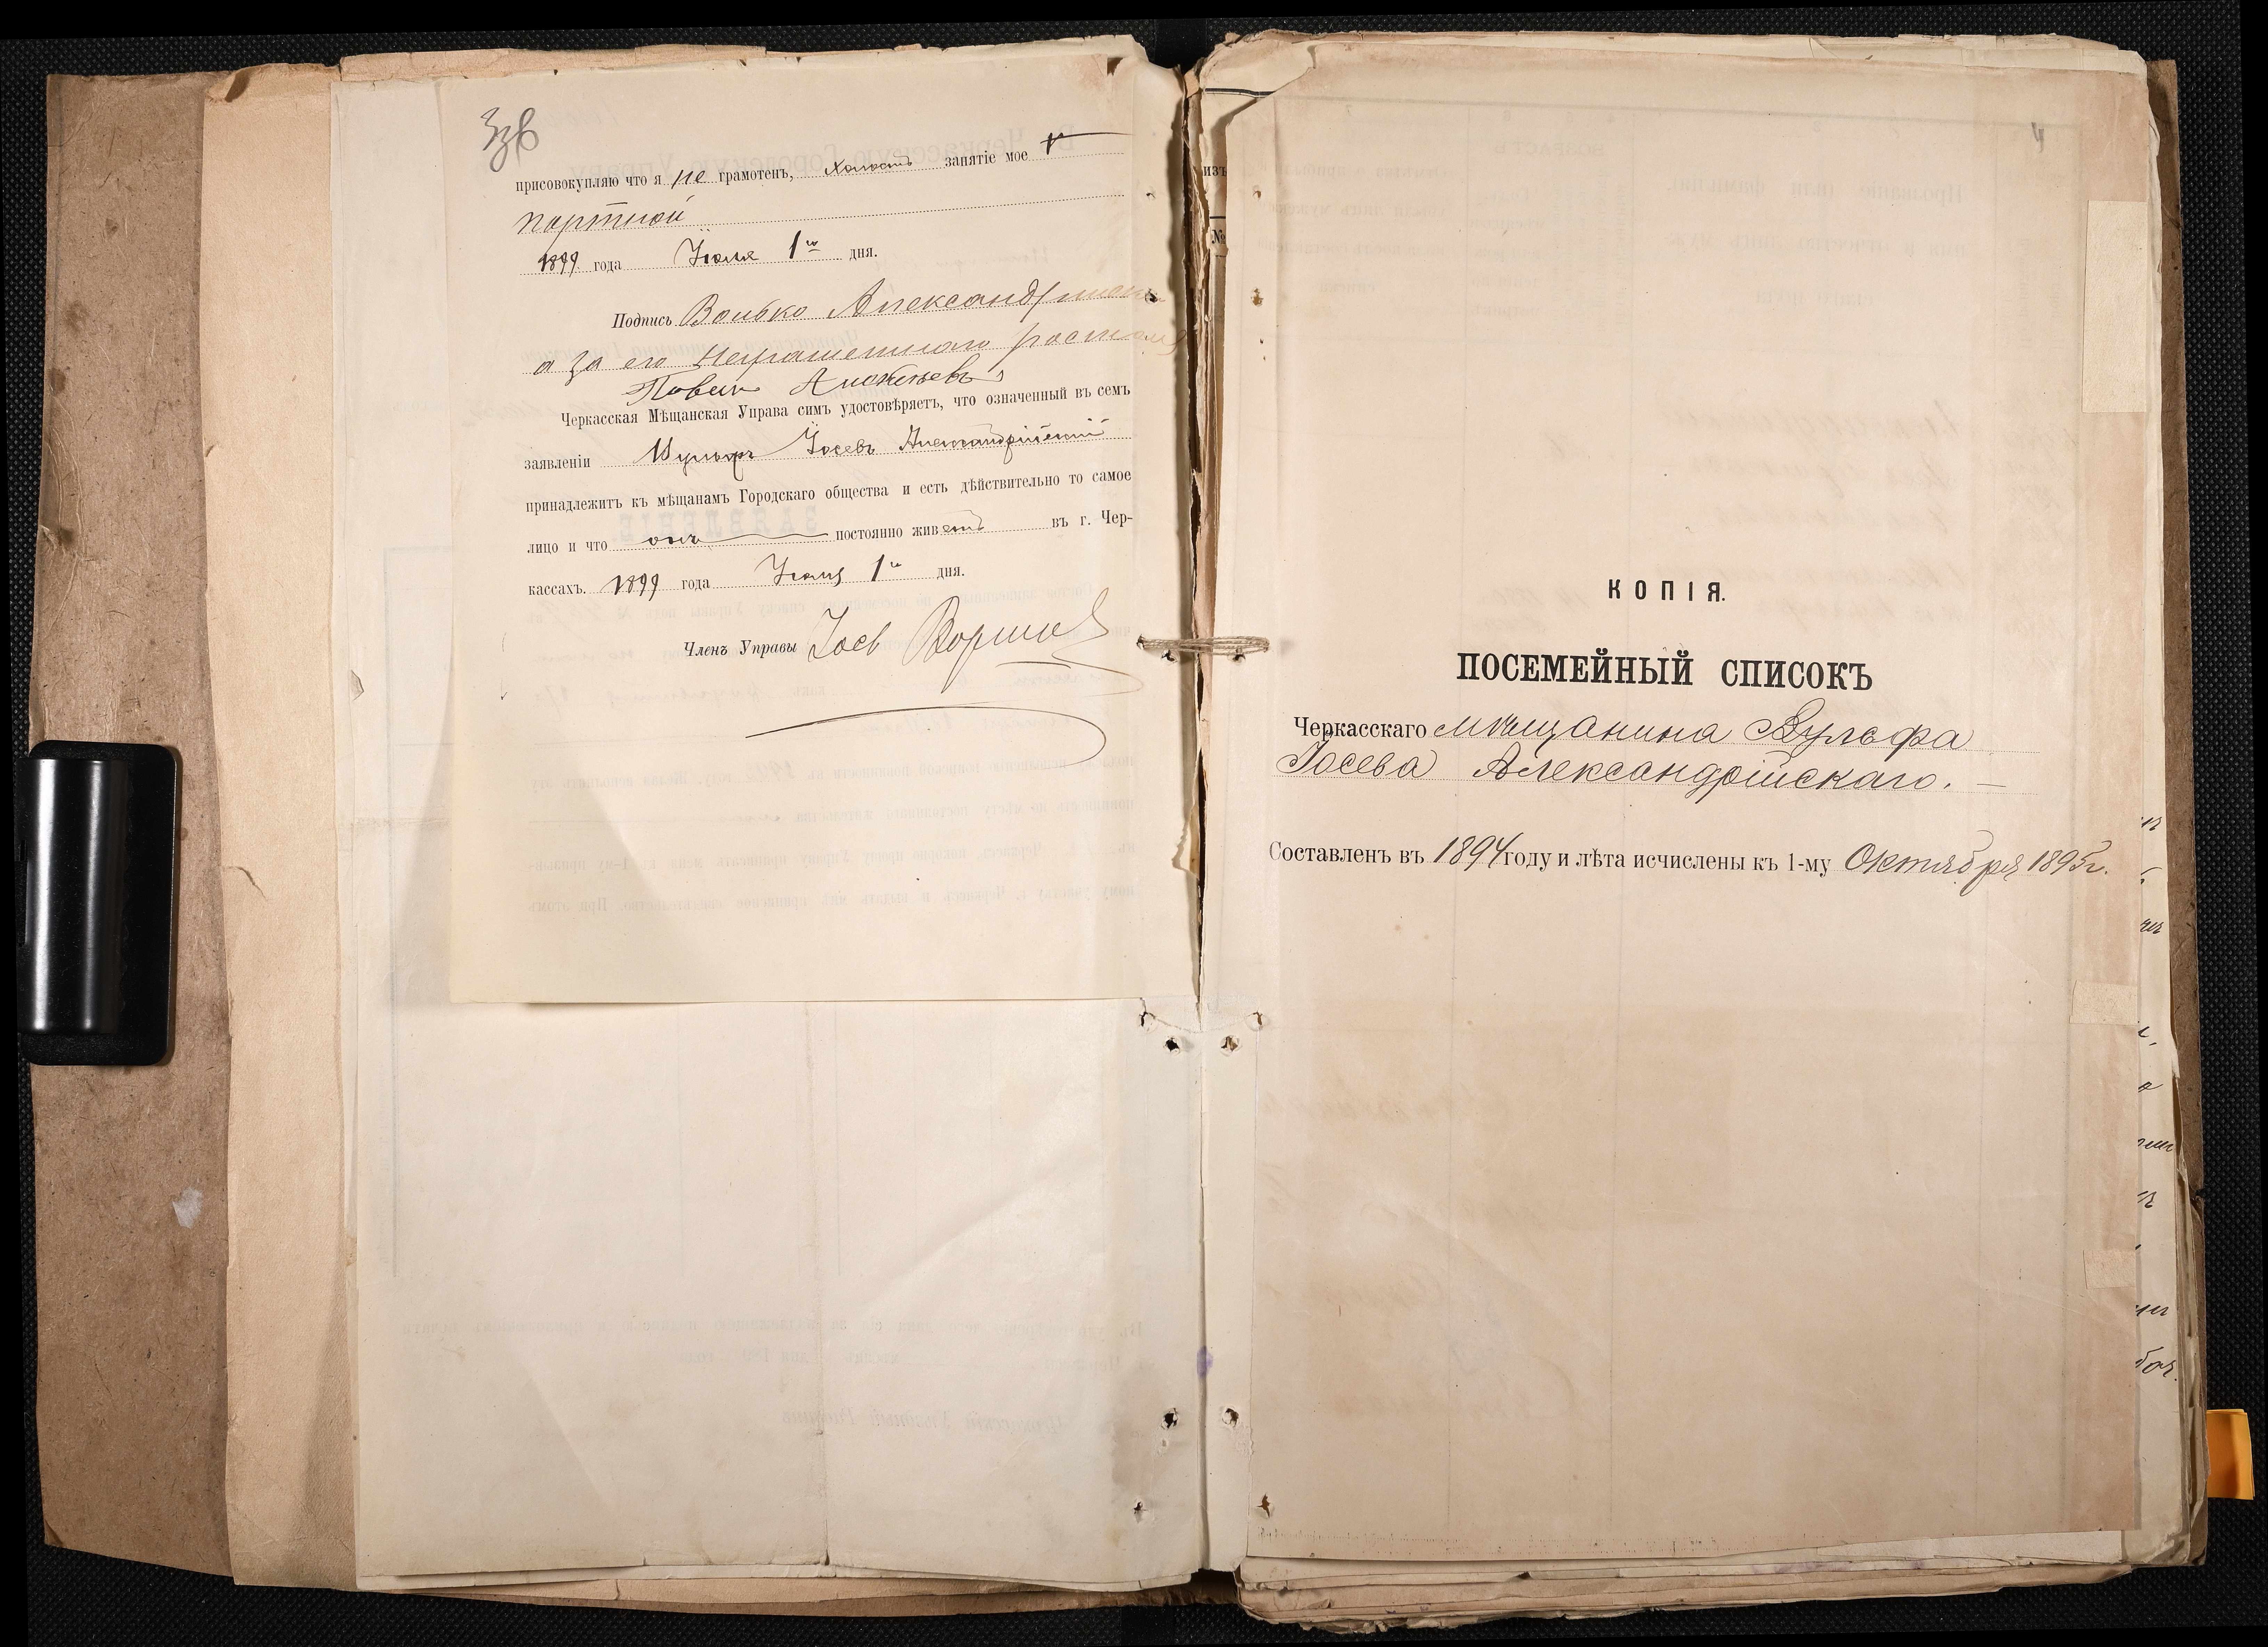 3об
присовокупляю что я не грамотенъ, холостъ занятіе мое
портной
1899 года Іюля 1го дня.
Подпись Волько Александрійскій
а за его неграмотнаго росписался
Черкасская Мѣщанская Управа симъ удостовѣряетъ, что означенный въ семъ
заявленіи Вульфъ Іосевъ Александрійскій
принадлежитъ къ мѣщанамъ Городскаго общества и есть дѣйствительно то самое
лицо и что онъ постоянно живетъ въ г. Чер-
кассахъ. 1899 года Іюля 1го дня.
Членъ Управы Іось
4
КОПІЯ.
ПОСЕМЕЙНЫЙ СПИСОКЪ
Черкасскаго мѣщанина Вульфа
Іосева Александрійскаго.
Составленъ въ 1894 году и лѣта исчислены къ 1-му Октября 1895 г.